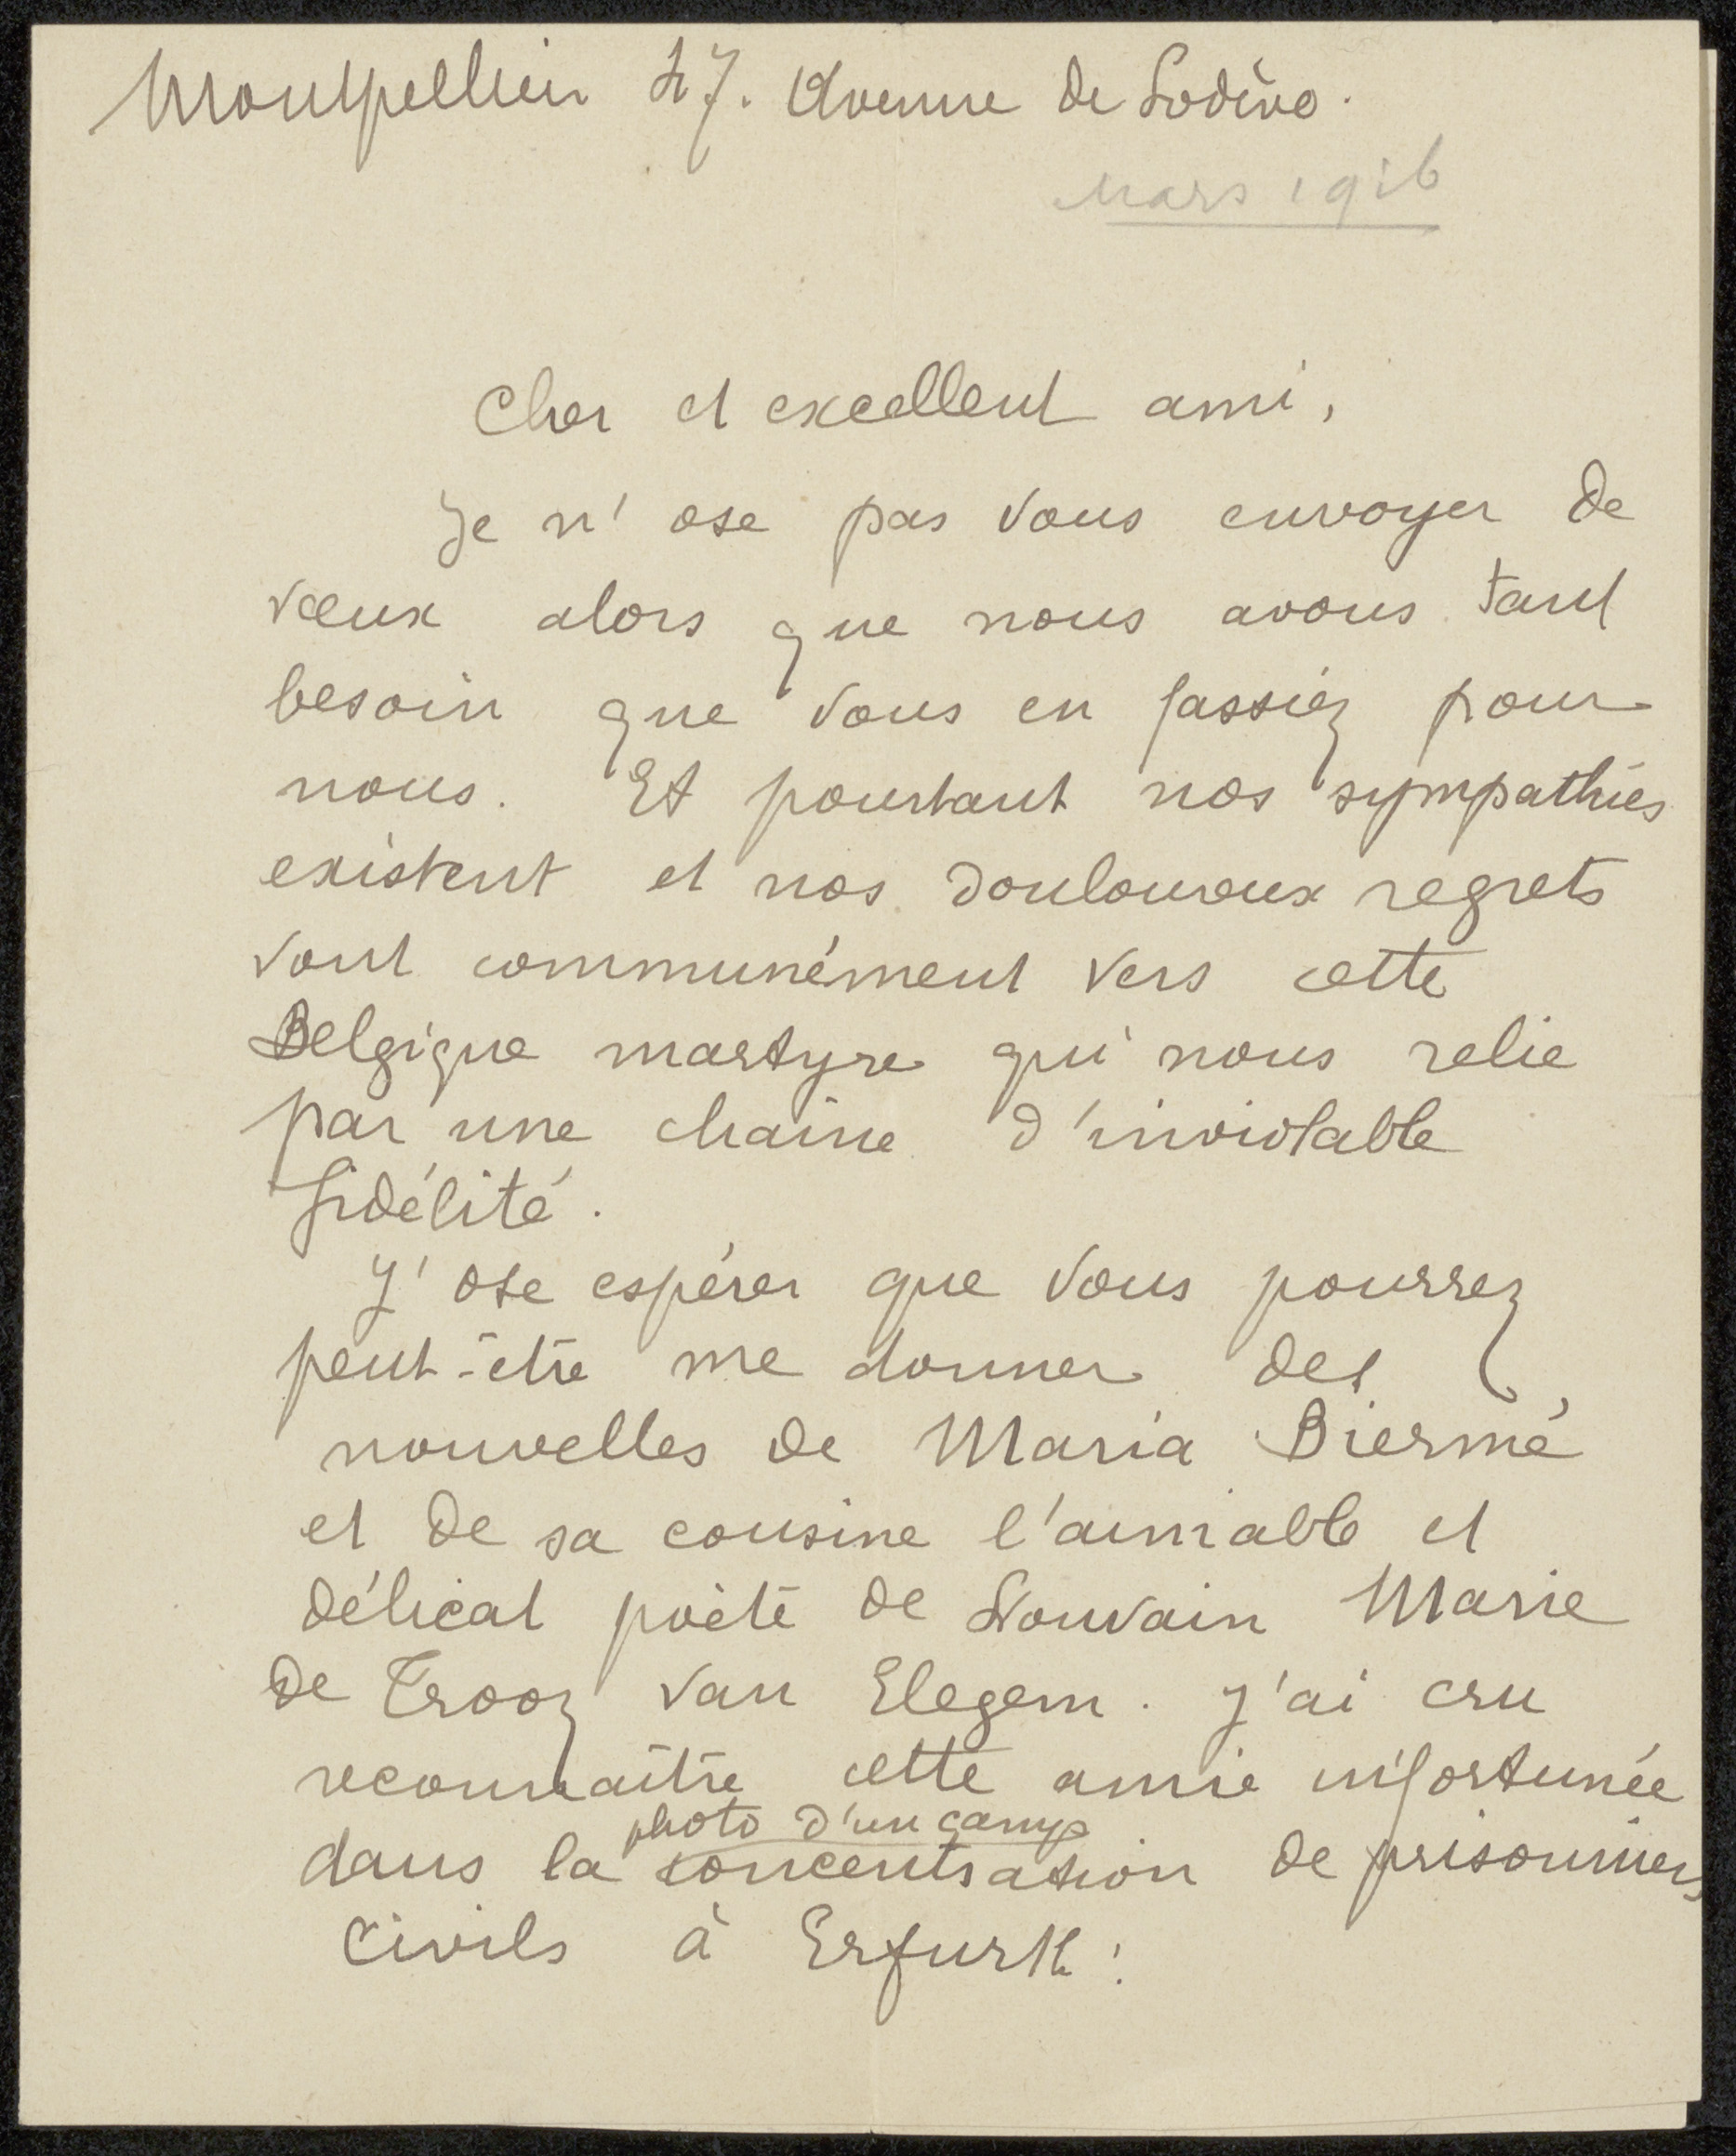 Montpellier 47. Avenue de Lodève.
Mars 1916
Cher et excellent ami,
Je n'ose pas vous envoyer de
vœux alors que nous avons tant
besoin que vous en fassiez pour
nous. Et pourtant nos sympathies
existent et nos douloureux regrets
vont communément vers cette
Belgique martyre qui nous relie
par une chaine d'inviolable
fidélité.
J'ose espérer que vous pourrez
peut-être me donner des
nouvelles de Maria Biermé
et de sa cousine l'aimable et
délicat poète de Louvain Marie
de Trooz van Elegem. J'ai cru
reconnaître cette amie infortunée
photo d'un camp
dans la concentration de prisonniers
civils à Erfurth!